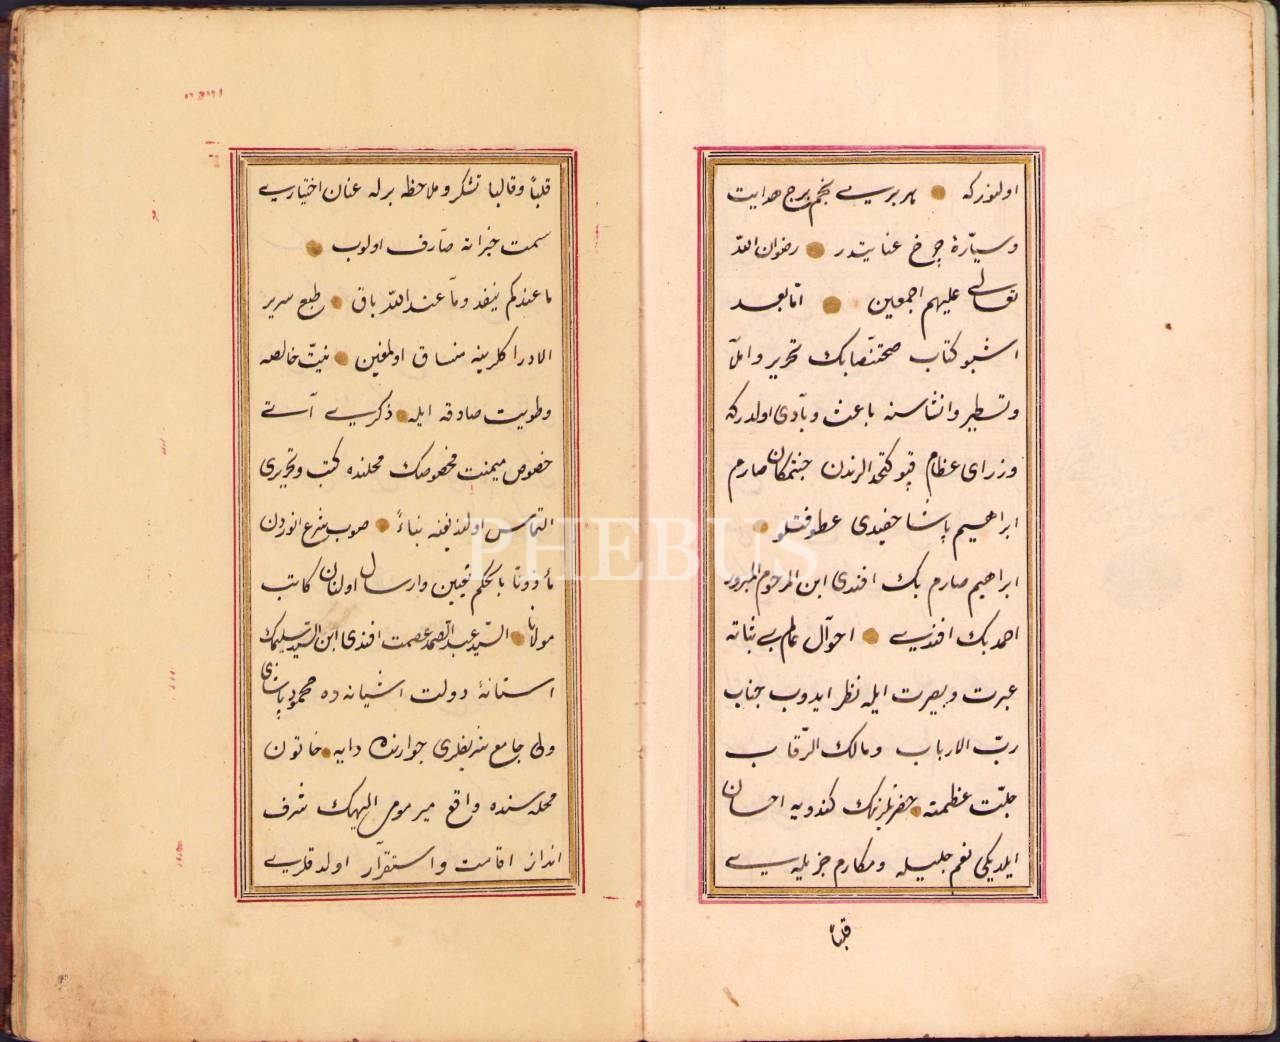 اولنورکه هر بریسی نجم برج هدایت
وسیّارهٔ چرخ عنایتدر رضوان اللّه
تعالی علیهم اجمعین امّا بعد
اشبو کتاب صحتنصابك تحریر واملآ
وتسطیر وانشاسنه باعث وبآدی اولدرکه
وزرای عظام قپو کتخدالرندن جنتمکان صارم
ابراهیم پاشا حفیدی عطوفتلو
ابراهیم صارم بك افندی ابن المرحوم المبرور
احمد بك افندی احوآل عالم بی ثباته
عبرت وبصیرت ایله نظر ایدوب جناب
ربّ الارباب ومالك الرّقاب
جلّت عظمته حضرتلرینك کندویه احسان
ایلدیکی نعم جلیله ومکارم جزیله سی
قلباً
قلباً وقالبا تشکر وملاحظه برله عنان اختیاری
سمت خیراته صآرف اولوب
ما عندکم ینفد ومآ عند اللّه باق طبع سریر
الادراکلرینه منساق اولمغین نیّت خالصه
وطویت صادقه ایله ذکری آتی
خصوص میمنت مخصوصك محلنده کتب وتحریری
التماس اولندیغنه بناءً صوب شرع انوردن
مأذوناً بالحکم تعیین وارسال اولنان کاتب
مولانا السّید عبد الصّمد عصمت افندی ابن السّید سلیمك
استانهٔ دولت اشیانه ده محمود پاشای
ولی جامع شریفلری جوارنده دایه خاتون
محله سنده واقع میر مومی الیهك شرف
انداز اقامت واستقرآر اولدقلری
PHEBUS